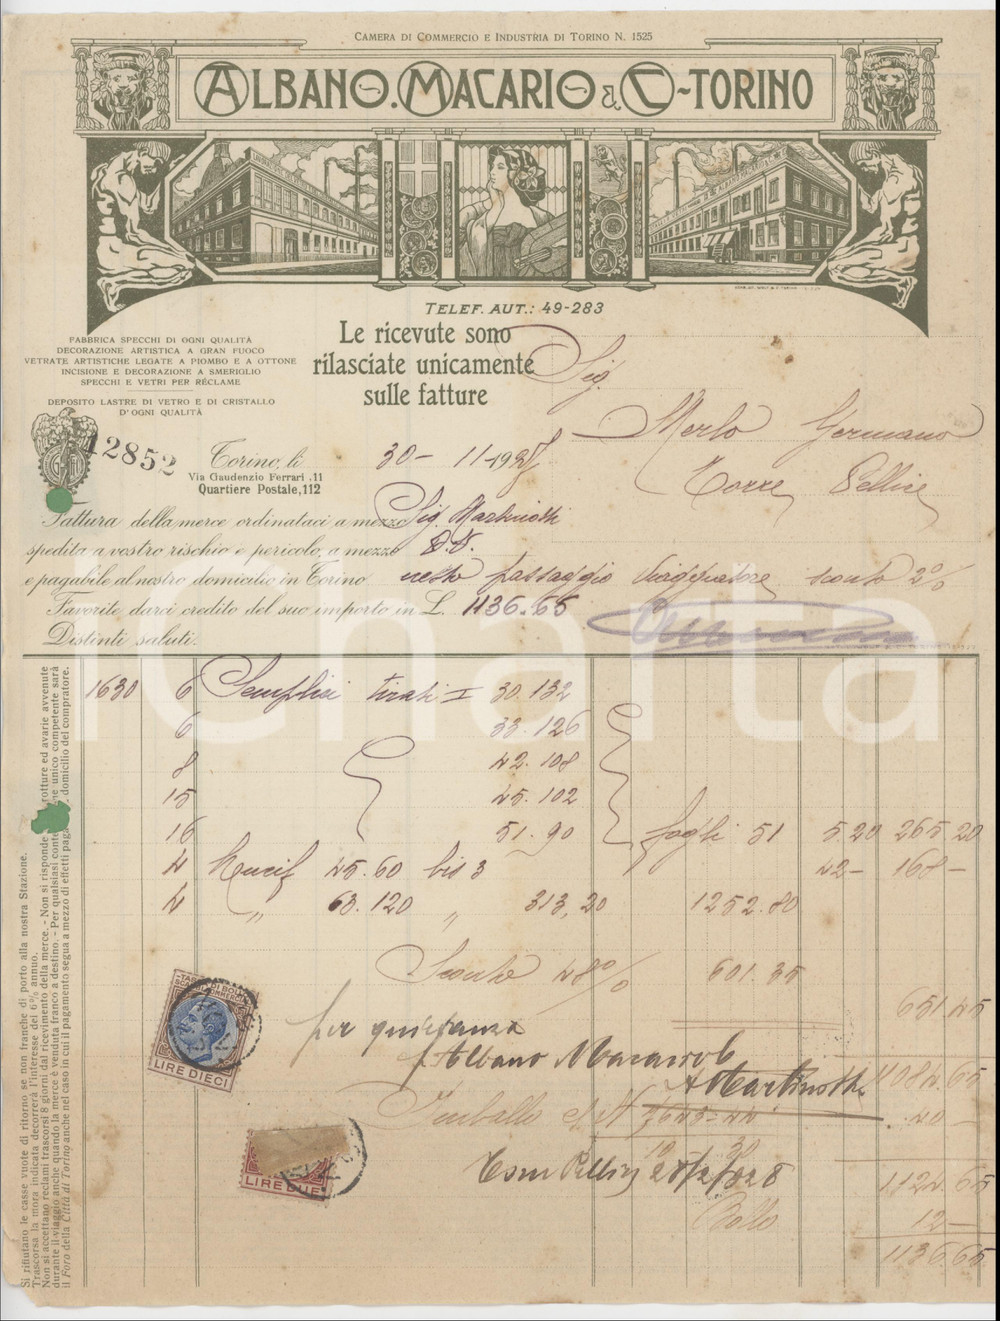 CAMERA DI COMMERCIO E INDUSTRIA DI TORINO N. 1525
ALBANO. MACARIO & C - TORINO
TELEF. AUT.: 49-283
FABBRICA SPECCHI DI OGNI QUALITÀ
DECORAZIONE ARTISTICA A GRAN FUOCO
VETRATE ARTISTICHE LEGATE A PIOMBO E A OTTONE
INCISIONE E DECORAZIONE A SMERIGLIO
SPECCHI E VETRI PER RÉCLAME
DEPOSITO LASTRE DI VETRO E DI CRISTALLO
D'OGNI QUALITÀ
Le ricevute sono
rilasciate unicamente
sulle fatture
Sig.
Merlo Germano
Torre Pellice
12852
Torino, li 30 - 11 - 192
Via Gaudenzio Ferrari, 11
Quartiere Postale, 112
Fattura della merce ordinataci a mezzo Sig. Martinotti
spedita a vostro rischio e pericolo, a mezzo
e pagabile al nostro domicilio in Torino netto passaggio viaggiatore sconto 2%
Favorite darci credito del suo importo in L. 1136.65
Distinti saluti.
1630 6 Semplici tirati I 30.132
6 33.126
8 42.108
15 45.102
16 51.90 fogli 51 5.20 265.20
4 45.60 bis 3 42- 168-
4 " 63.120 " 313,20 1252.80
Sconto 48% 601.35
651.45
per quietanza
Albano Macario
A Martinotti
1084.65
40
28/2/928
1124.65
Bollo 12-
1136.65
TASSA DI BOLLO
LIRE DIECI
LIRE DUE
Si rifiutano le casse vuote di ritorno se non franche di porto alla nostra Stazione.
Trascorsa la mora indicata decorrerà l'interesse del 6% annuo.
Non si accettano reclami trascorsi 8 giorni dal ricevimento della merce. - Non si risponde rotture ed avarie avvenute
durante il viaggio anche quando la merce è venduta franco a destino. - Per qualsiasi unico competente sarà
il Foro della Città di Torino anche nel caso in cui il pagamento segua a mezzo di effetti domicilio del compratore.
iCharta